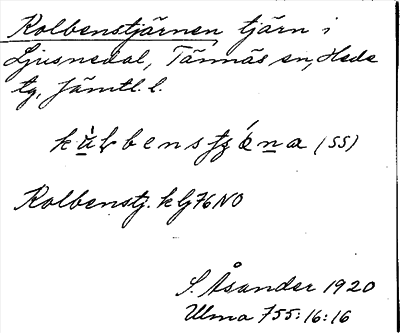 Kolbenstjärnen tjärn i
Ljusnedal, Tännäs sn, Hede
tg, Jämtl. l.
Kolbenstj. k lj 76 NO
S. Åsander 1920
Ulma 755:16:16